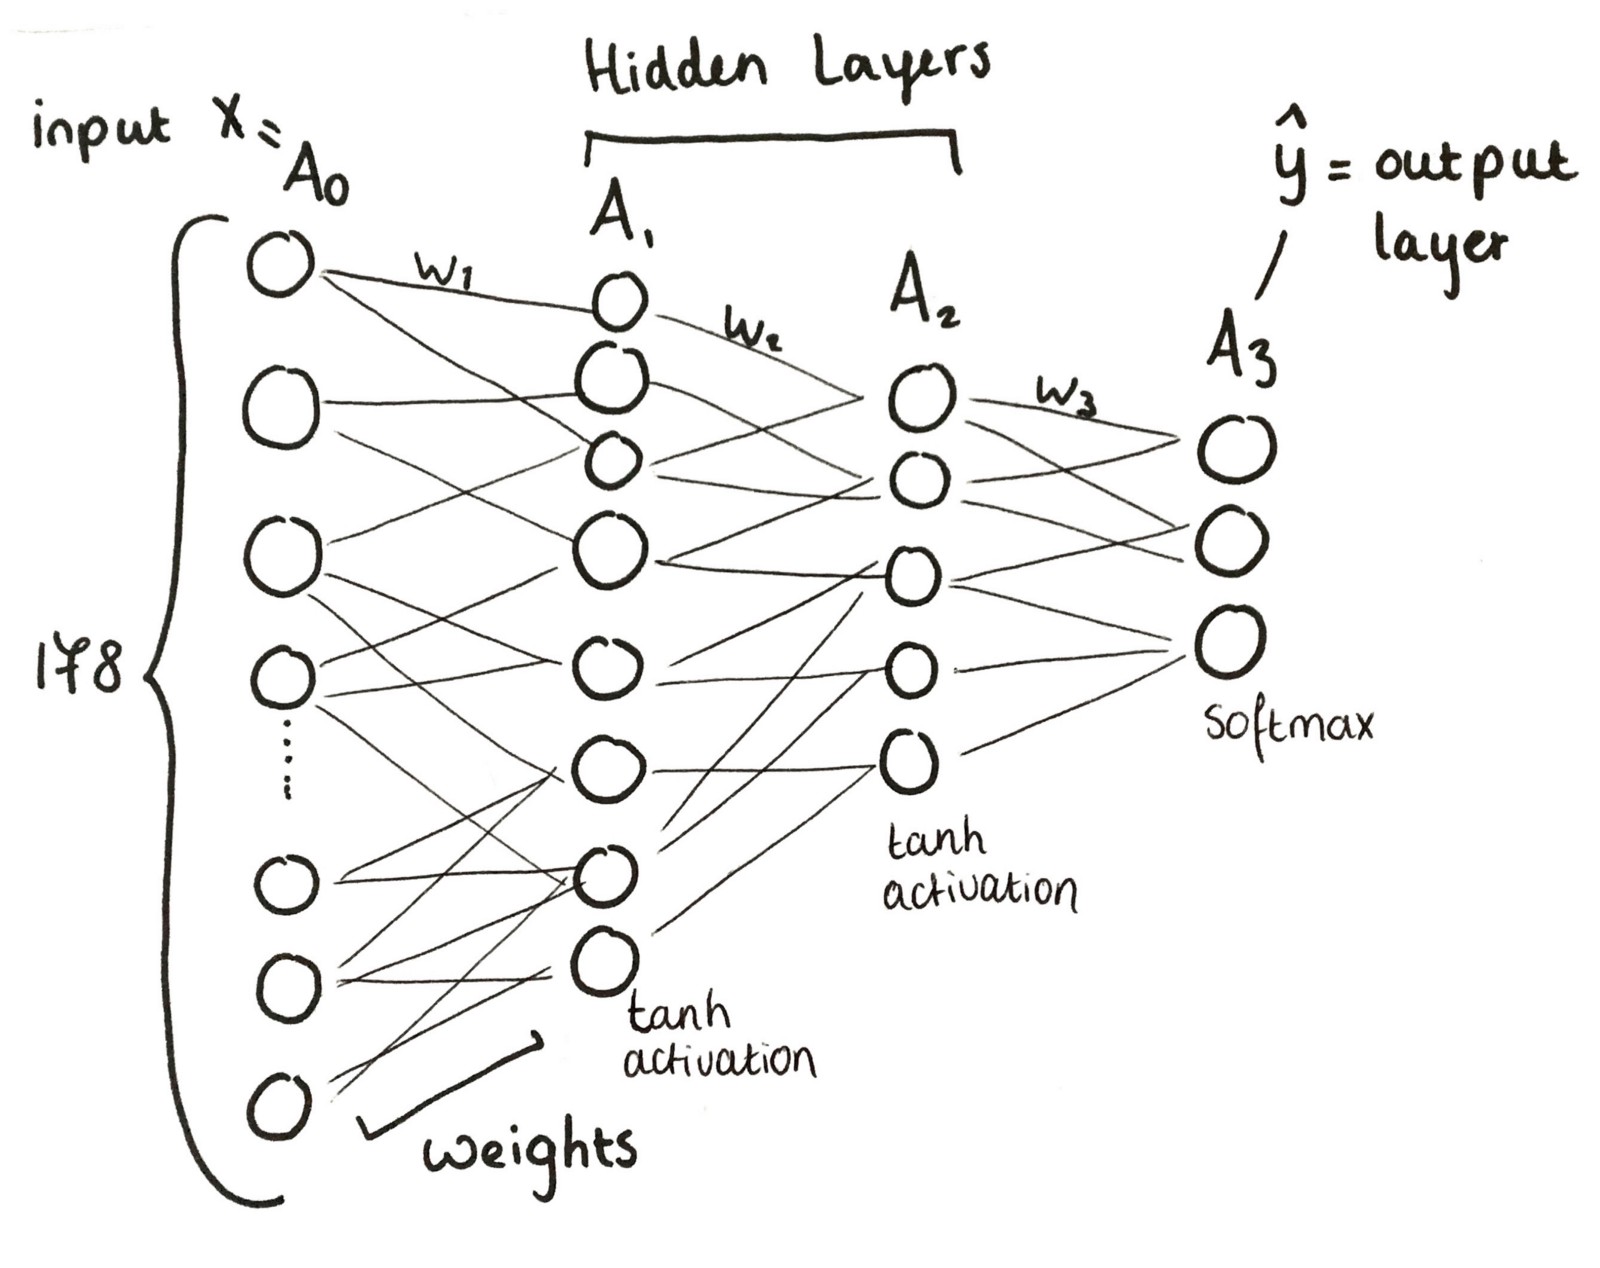 Hidden Layers
input x =
A0
A1
A2
ŷ = output
layer
A3
W1
W2
W3
178
softmax
tanh
activation
tanh
activation
weights